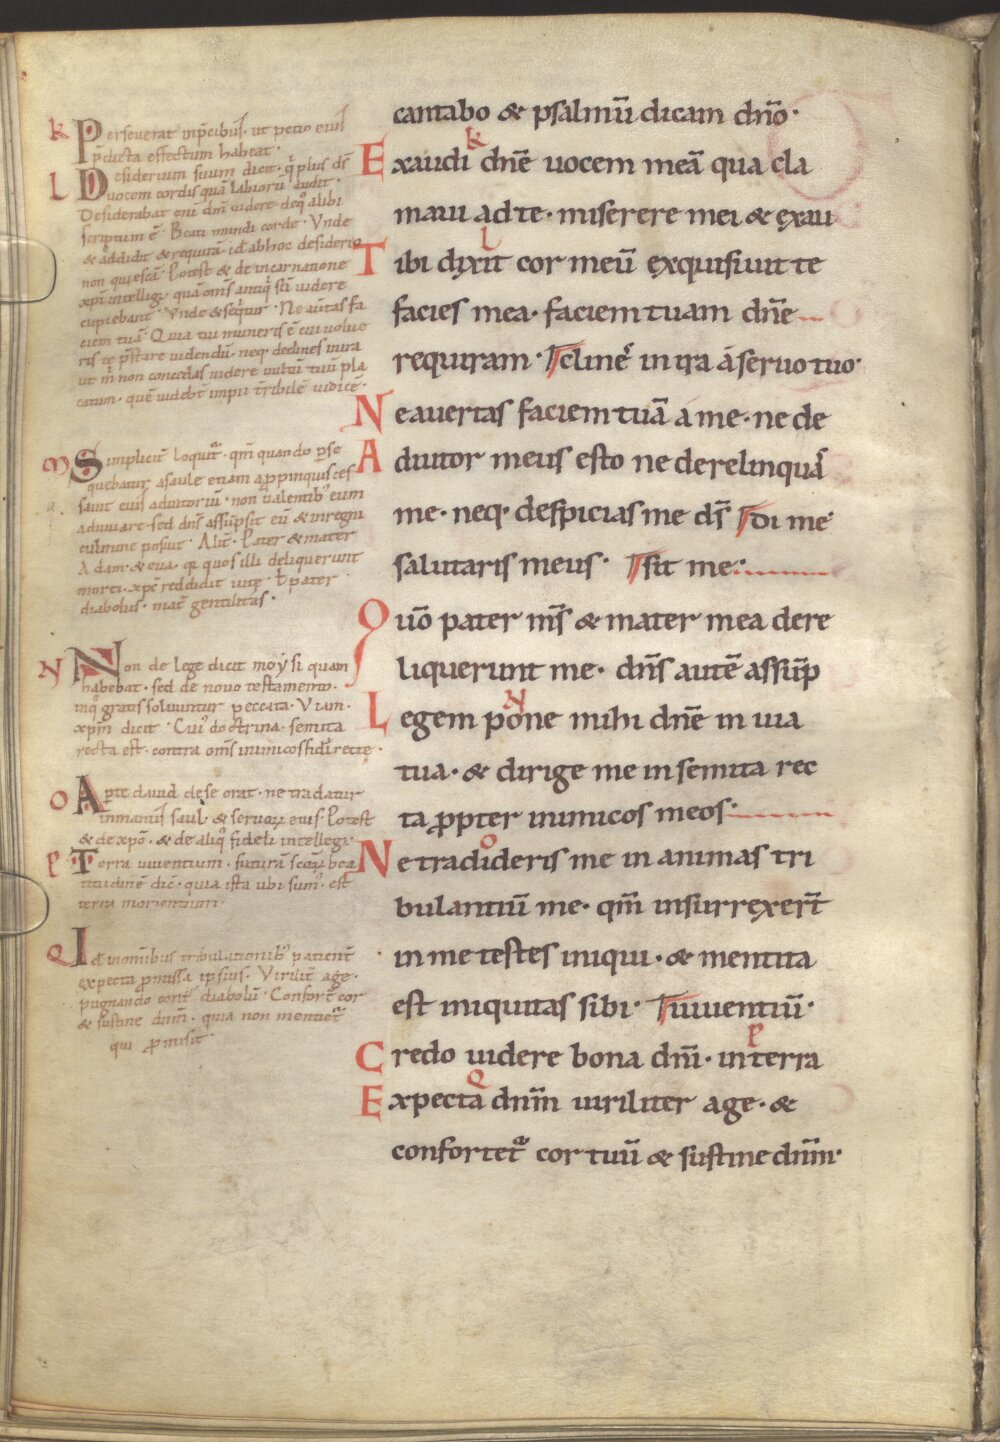 k Perseverat in p̄cibus. ut peticio eius
p̄dicta effectum habeat.
l Desiderium suum dicit. q̄ plus dꝰ
uocem cordis quā labioru᷒ audit.
Desiderabat eni dn̄m uidere. de q̊ alibi
scriptum ē. Beati mundi corde. Vnde
& addidit & requirā. id ab hoc desiderio
non quiescā. Potest & de incarnatione
xpi intelligi. quā om̄s antiq̄ sc̄i uidere
cupiebant. Vnde & seq̄tur. Ne au̅tas fa
ciem tuā. Quia tui muneris ē cui uolue
ris te p̄stare uidendū. neq. declines in ira
ut m̄ non concedas uidere uultū tuū pla
catum. quē uideb̄t impii t̄ribilē iudicē.
m Simplicit̄ loquit̄. qm̄ quando p̄se
quebatur a saule etiam a ꝓpinquis ces
sauit eius adiutoriū. non ualentib; eum
adiuuare. sed dn̄s assūpsit eū & in regni
culmine posuit. Alit̄. Pater & mater
Adam. & eua. qi quos illi deliquerunt
morti. xpc̄ reddidit uitę. ł pater
diabolus. mat̄ gentilitas.
N Non de lege dicit moẏsi quam
habebat. sed de nouo testamento.
in q̊ gratis soluuntur peccata. Viam.
xpm̄ dicit. Cui' doctrina. semita
recta est. contra om̄s inimicos fidei rectę.
o Apte dauid de se orat. ne tradatur
in manus saul. & seruoꝝ eius. Potest
& de xpō. & de aliq̊ fideli intellegi.
P Terra uiuentium. futurā scōꝝ bea
titudinē dic̄. quia ista ubi sum'. est
terra morientium.
Q Id in om̄ibus tribulationib; patient̄
expecta ꝓmissa ipsius. Virilit̄ age.
pugnando cont̄ diabolū. Confort̄ cor
& sustine dn̄m. quia non mentiet̄
qui ꝓmisit.
cantabo & psalmū dicam dn̄o.
k
Exaudi dn̄e uocem meā qua cla
maui ad te. miserere mei & exau
L
Tibi dixit cor meū exquisiuit te
facies mea. faciem tuam dn̄e
requiram. clines in ira á seruo tuo.
Ne auertas faciem tuā a me. ne de
Adiutor meus esto ne derelinquas
me. neq. despicias me dꝰ di me
salutaris meus. sit me.
Quō pater mꝰ & mater mea dere
liquerunt me. dn̄s autē assūp
N
Legem pone mihi dn̄e in uia
tua. & dirige me in semita rec
ta ꝓpter inimicos meos.
o
Ne tradideris me in animas tri
bulantiū me. qm̄ insurrexer̄t
in me testes iniqui. & mentita
est iniquitas sibi. uiuentiū.
P
Credo uidere bona dn̄i. in terra
Q
Expecta dn̄m uiriliter age. &
confortet̄ cor tuū & sustine dn̄m.